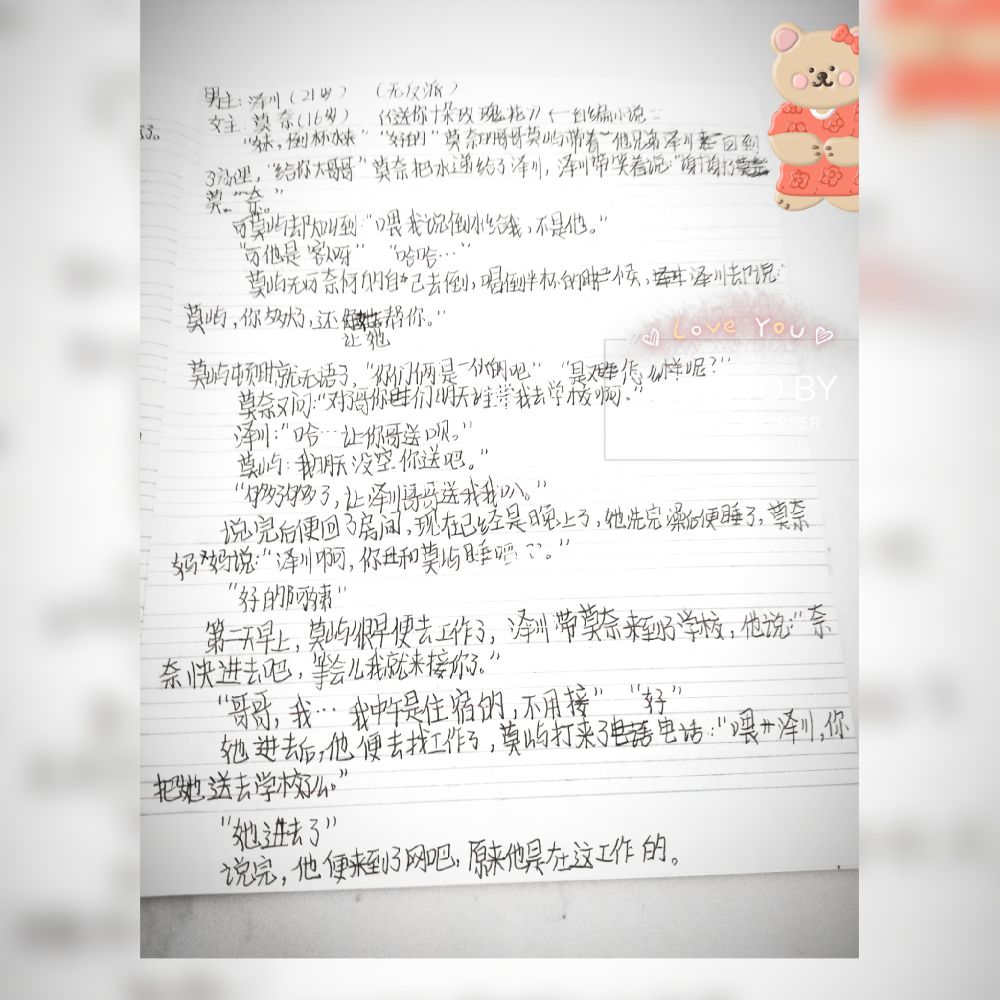 男主：泽川（21岁）（无反派）
女主：莫奈（16岁）《送你十朵玫瑰花》（一自编小说）
"妹，倒杯水" "好的" 莫奈的哥哥莫屿带着他兄弟泽川回到
了家里，"给你大哥哥" 莫奈把水递给了泽川，泽川带笑着说："谢谢了
莫奈。"
可莫屿却大叫到："喂我说倒水给我，不是他。"
"可他是客人呀" "哈哈…"
莫屿无可奈何的自己去倒，喝倒半杯的时候，泽川去却说："
莫屿，你多大了，还让她帮你。"
莫屿顿时就无语了，"你们俩是一伙的吧" "是又怎么样呢？"
莫奈又问："对了哥你们明天谁带我去学校啊。"
泽川："哈…让你哥送呗。"
莫屿：我明天没空你送吧。"
"够了够了，让泽川哥哥送我我叭。"
说完后便回了房间，现在已经是晚上了，她洗完澡后便睡了，莫奈
妈妈说："泽川啊，你和莫屿睡吧。"
"好的阿姨"
第二天早上，莫屿很早便去工作了，泽川带莫奈来到了学校，他说："奈
奈快进去吧，等会儿我就来接你了。"
"哥哥，我… 我中午是住宿的，不用接" "好"
她进去后，他便去找工作了，莫屿打来了电话："喂 泽川，你
把她送去学校么。"
"她进去了"
说完，他便来到了网吧，原来他是在这工作的。
Love You